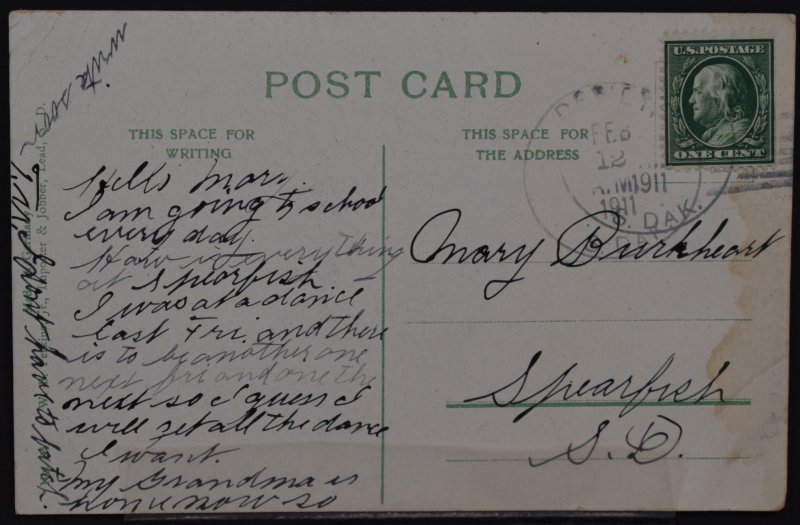 POST CARD
THIS SPACE FOR
WRITING
Hello Mary.
I am going to school
every day.
How is everything
at Spearfish.
I was at a dance
last Fri. and there
is to be another one
next fri and one the
next so I guess I
will get all the dance
I want.
My Grandma is
home now so
I
write soon
& Jobber, Lead,
THIS SPACE FOR
THE ADDRESS
U.S. POSTAGE
ONE CENT
FEB
12
A.M 1911
1911
S. DAK.
Mary Burkheart
Spearfish
S.D.